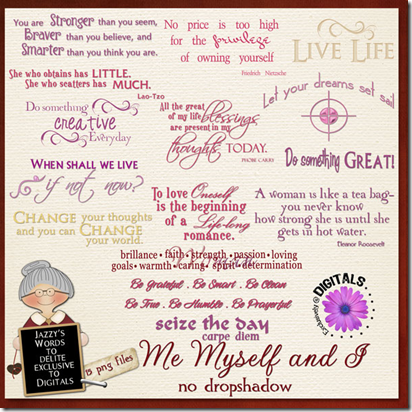 You are Stronger than you seem,
Braver than you believe, and
Smarter than you think you are.
No price is too high
for the privilege
of owning yourself
Friedrich Nietzsche
LIVE LIFE
She who obtains has LITTLE.
She who scatters has MUCH.
Lao-Tzo
Let your dreams set sail
Do something
creative
Everyday
All the great
of my life blessings
are present in my
thoughts TODAY.
PHOEBE CARRY
Do something GREAT!
WHEN SHALL WE LIVE
if not now?
To love Oneself
is the beginning
of a Life-long
romance.
A woman is like a tea bag-
you never know
how strong she is until she
gets in hot water.
Eleanor Roosevelt
CHANGE your thoughts
and you can CHANGE
your world.
brillance • faith • strength • passion • loving
goals • warmth • caring • spirit • determination
Be Grateful . Be Smart . Be Clean
Be True . Be Humble . Be Prayerful
seize the day
carpe diem
DIGITALS
Exclusively @
JAZZY'S
WORDS
TO
DELITE
EXCLUSIVE
TO
DIGITALS
png files
Me Myself and I
no dropshadow